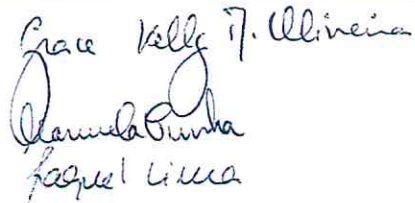 Grace Kelly M. Oliveira
Manuela Cunha
Raquel Lima